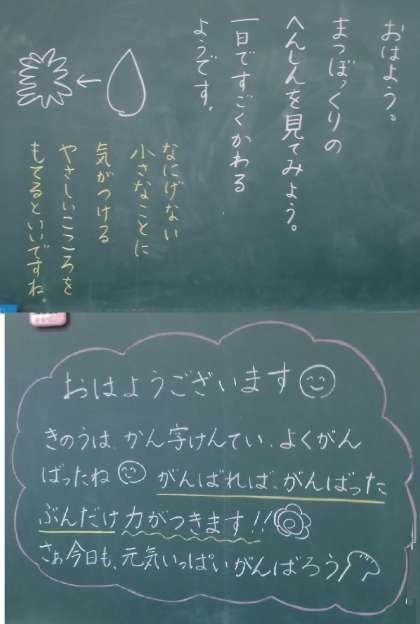 おはよう。
まつぼっくりの
へんしんを見てみよう。
一日ですごくかわる
ようです。
なにげない
小さなことに
気がつける
やさしいこころを
もてるといいですね
おはようございます
きのうは、かん字けんてい、よくがん
ばったね がんばれば、がんばった
ぶんだけ力がつきます!!
さぁ今日も、元気いっぱいがんばろう